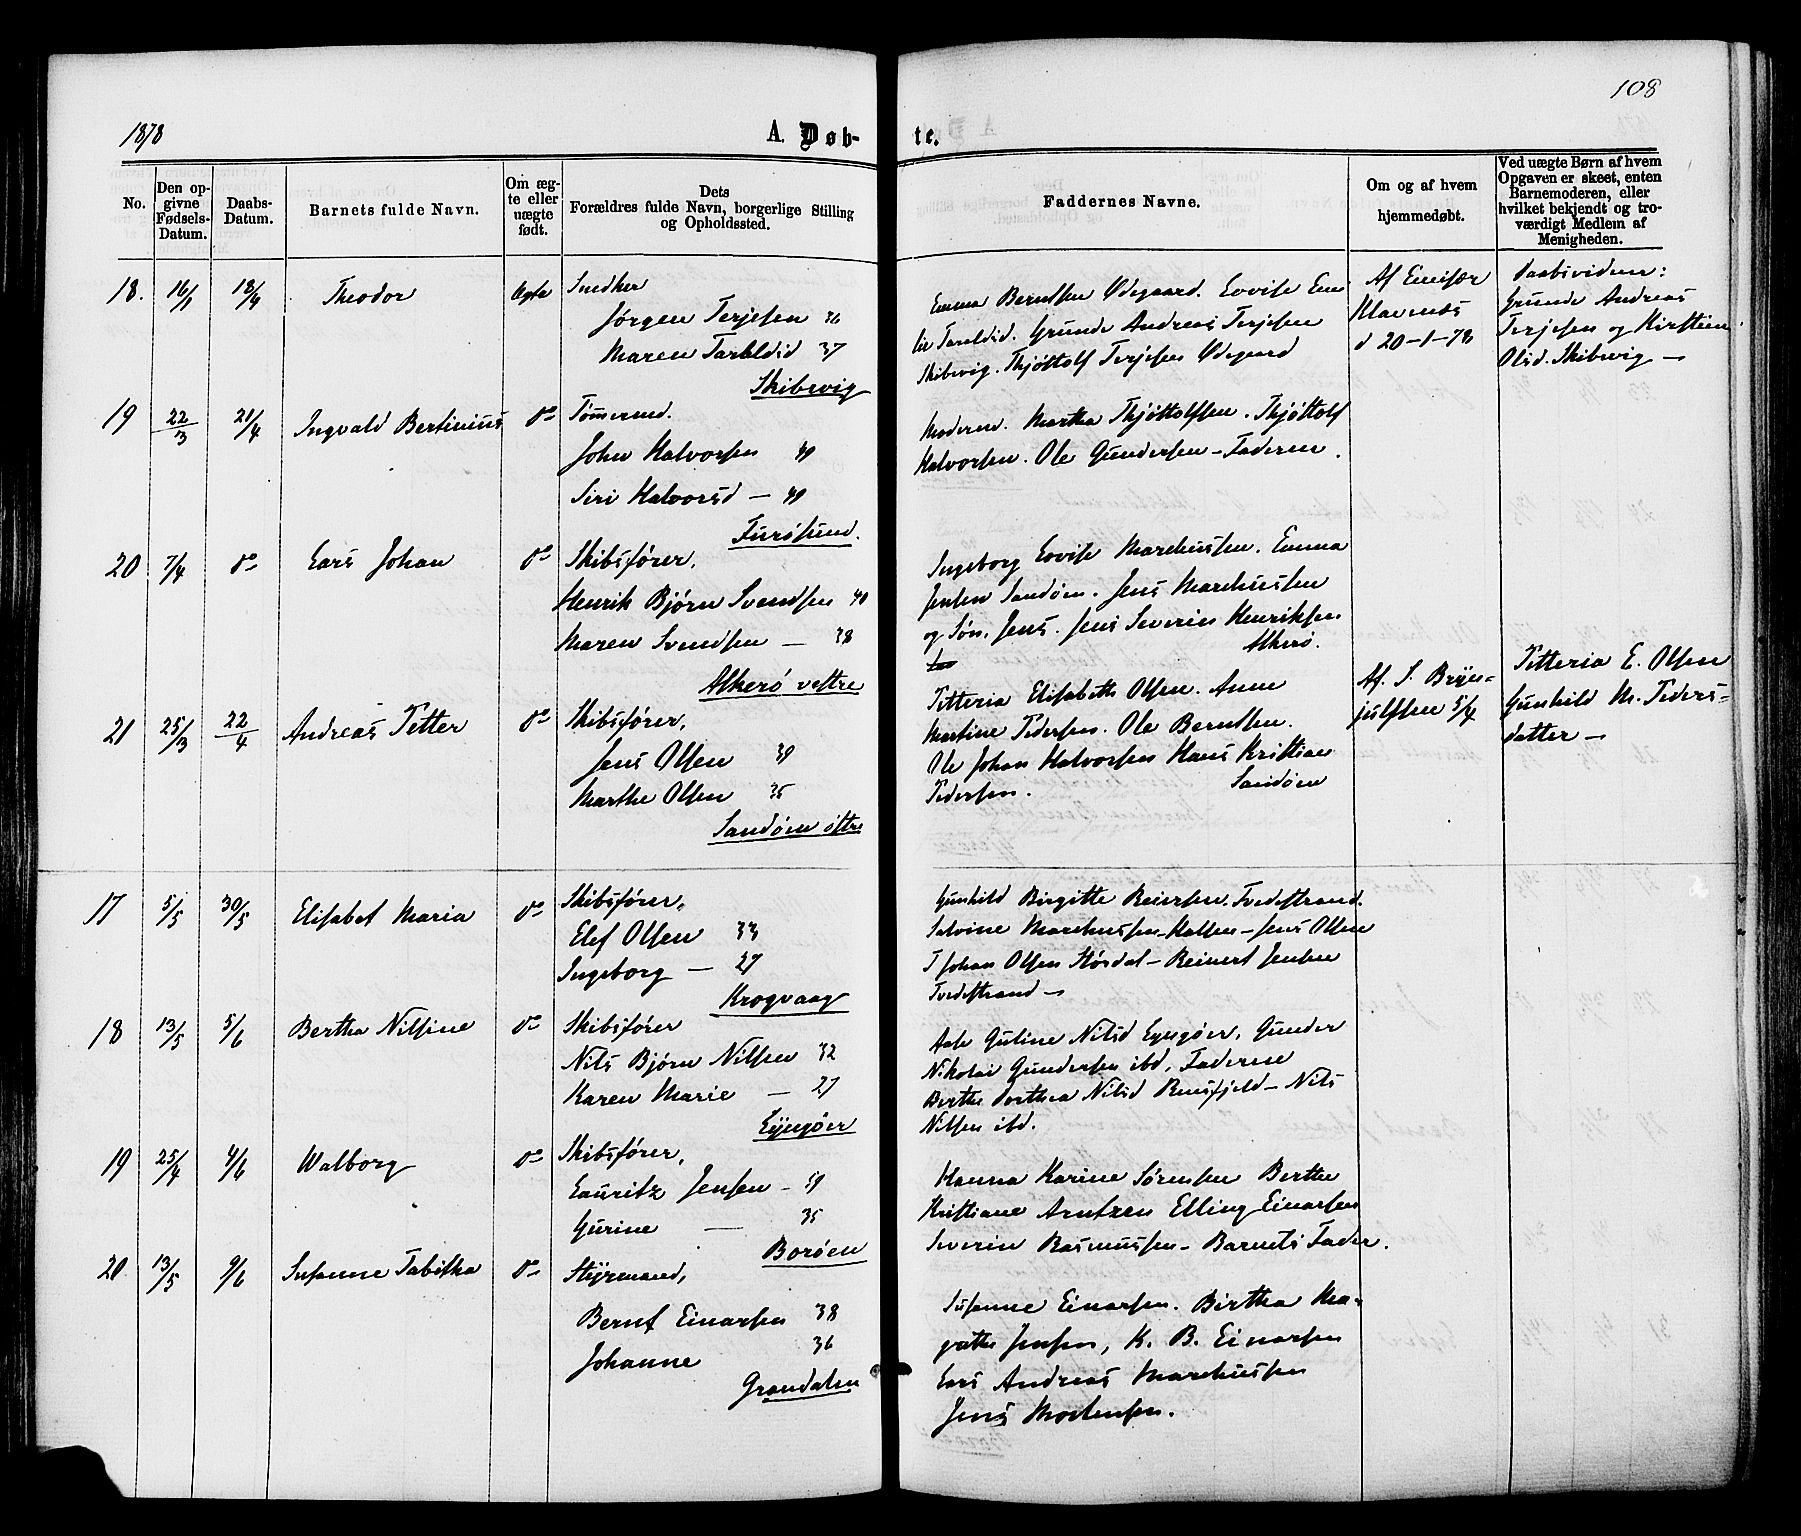 108
1878
A. Døb-
te.
No.
Den op-
givne
Fødsels-
Datum.
Daabs-
Datum.
Barnets fulde Navn.
Om æg-
te eller
uægte
født.
Dets
Forældres fulde Navn, borgerlige Stilling
og Opholdssted.
Faddernes Navne.
Om og af hvem
hjemmedøbt.
Ved uægte Børn af hvem
Opgaven er skeet, enten
Barnemoderen, eller
hvilket bekjendt og tro-
værdigt Medlem af
Menigheden.
18. 16/1 Theodor Ægte Snedker
Jørgen Terjesen 36
Maren 37
Skibevig
Emma Berntsen Ødegaard. Lovise Emi
lie Taraldsd. Grunde Andreas Terjesen
Skibevig. Thjøttolf Terjesen Ødegaard
Af Enefær
d 20-1-78
Daabsvidner:
Grunde Andreas
Terjesen og Kirstine
Olsd. Skibevig —
19 22/3 21/4 Ingvald Bertinius do Tømmermd.
John Halvorsen 40
Siri Halvorsd — 40
Furøsund.
Moderen. Martha Thjøttolfsen. Thjøttolf
Halvorsen. Ole Gundersen – Faderen.
20 7/4 do Lars Johan do Skibsfører,
Henrik Bjørn Svendsen 40
Maren Svendsen — 38
Alkerø vestre
Ingeborg Lovise Marchussen. Emma
Jensen Sandøen. Jens Marchussen
og Søn, Jens. Jens Severin Henriksen
Alkerø.
21 25/3 22/4 Andreas Petter do Skibsfører,
Jens Olsen 39
Marthe Olsen 35
Sandøen østre
Petteria Elisabeth Olsen. Anne
Martine Pedersen. Ole Berntsen.
Ole Johan Halvorsen Hans Kristian
Pedersen. Sandøen
Af. S. Bryn-
julfsen 5/4
Petteria E. Olsen
Gunhild M. Peders-
datter —
17 5/5 30/5 Elisabet Maria do Skibsfører,
Elef Olsen 33
Ingeborg — 27
Krogvaag
Gunhild Birgitte Reiersen. Tvedestrand.
Selvine Marchussen – Kalsen – Jens Olsen
T Johan Olsen Størdal – Reinert Jensen
Tvedestrand —
18 13/5 5/6 Bertha Nilsine do Skibsfører
Nils Bjørn Nilsen 32
Karen Marie — 27
Lyngøer
Aase Guline Nilsd Lyngøer, Gunder
Nikolai Gundersen ibd, Faderen
Berthe Dorthea Nilsd – Nils
Nilsen ibd.
19 25/4 4/6 Walborg do Skibsfører,
Lauritz Jensen – 39
Gurine — 35
Borøen
Hanna Karine Sørensen Berthe
Kristiane Arntzen Elling Einarsen
Severin Rasmussen – Barnets Fader.
20 13/5 9/6 Susanne Tabitha do Styrmand,
Bernt Einarsen 38
Johanne 36
Grandalen
Susanne Einarsen. Birtha Ma-
grethe Jensen, K. B. Einarsen
Lars Andreas Marchussen
Jens Mortensen.